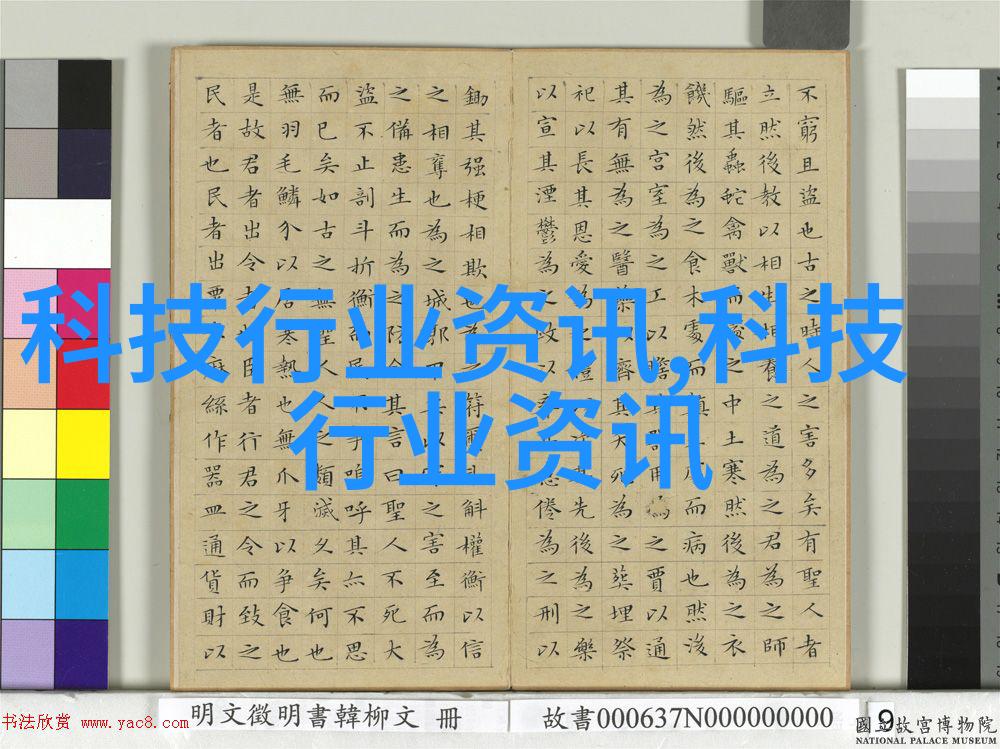 科技行业资讯,科技
行业资讯
不窮且盜也古之時人之害多矣有聖人者
立然後教以相生相養之道為之君為之師
驅其蟲蛇禽獸而處之中土寒然後為之衣
饑然後為之食木處而顛而病也然後
為之宮室為之工以贍器用為之賈以通
其有無為之醫藥以濟其夭死為之葬埋祭
祀以長其恩愛為之禮先後為之樂
以宣其湮鬱為之政以倦為之刑以
鋤其强梗相欺也為之符斛權衡以信
之相奪也為之城郭甲兵以之害至而為
之備患生而為之防今其言曰聖人不死大
盜不止剖斗折衡而民不爭嗚呼其亦不思
而已矣如古之無聖人人之類滅久矣何也
無羽毛鱗介以居寒熱也無爪牙以爭食也
是故君者出令者也臣者行君之令而致之
民者也民者出粟麻絲作器皿通貨財以
明文徵明書韓柳文 冊
故書000637N000000000
9
國立故宮博物院
NATIONAL PALACE MUSEUM
书法欣赏 www.yac8.com